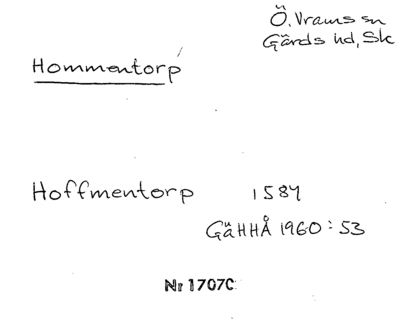 Ö. Vrams sn
Gärds hd, Sk
Hommentorp
Hoffmentorp 1584
GäHHÅ 1960:53
Nr 1707C